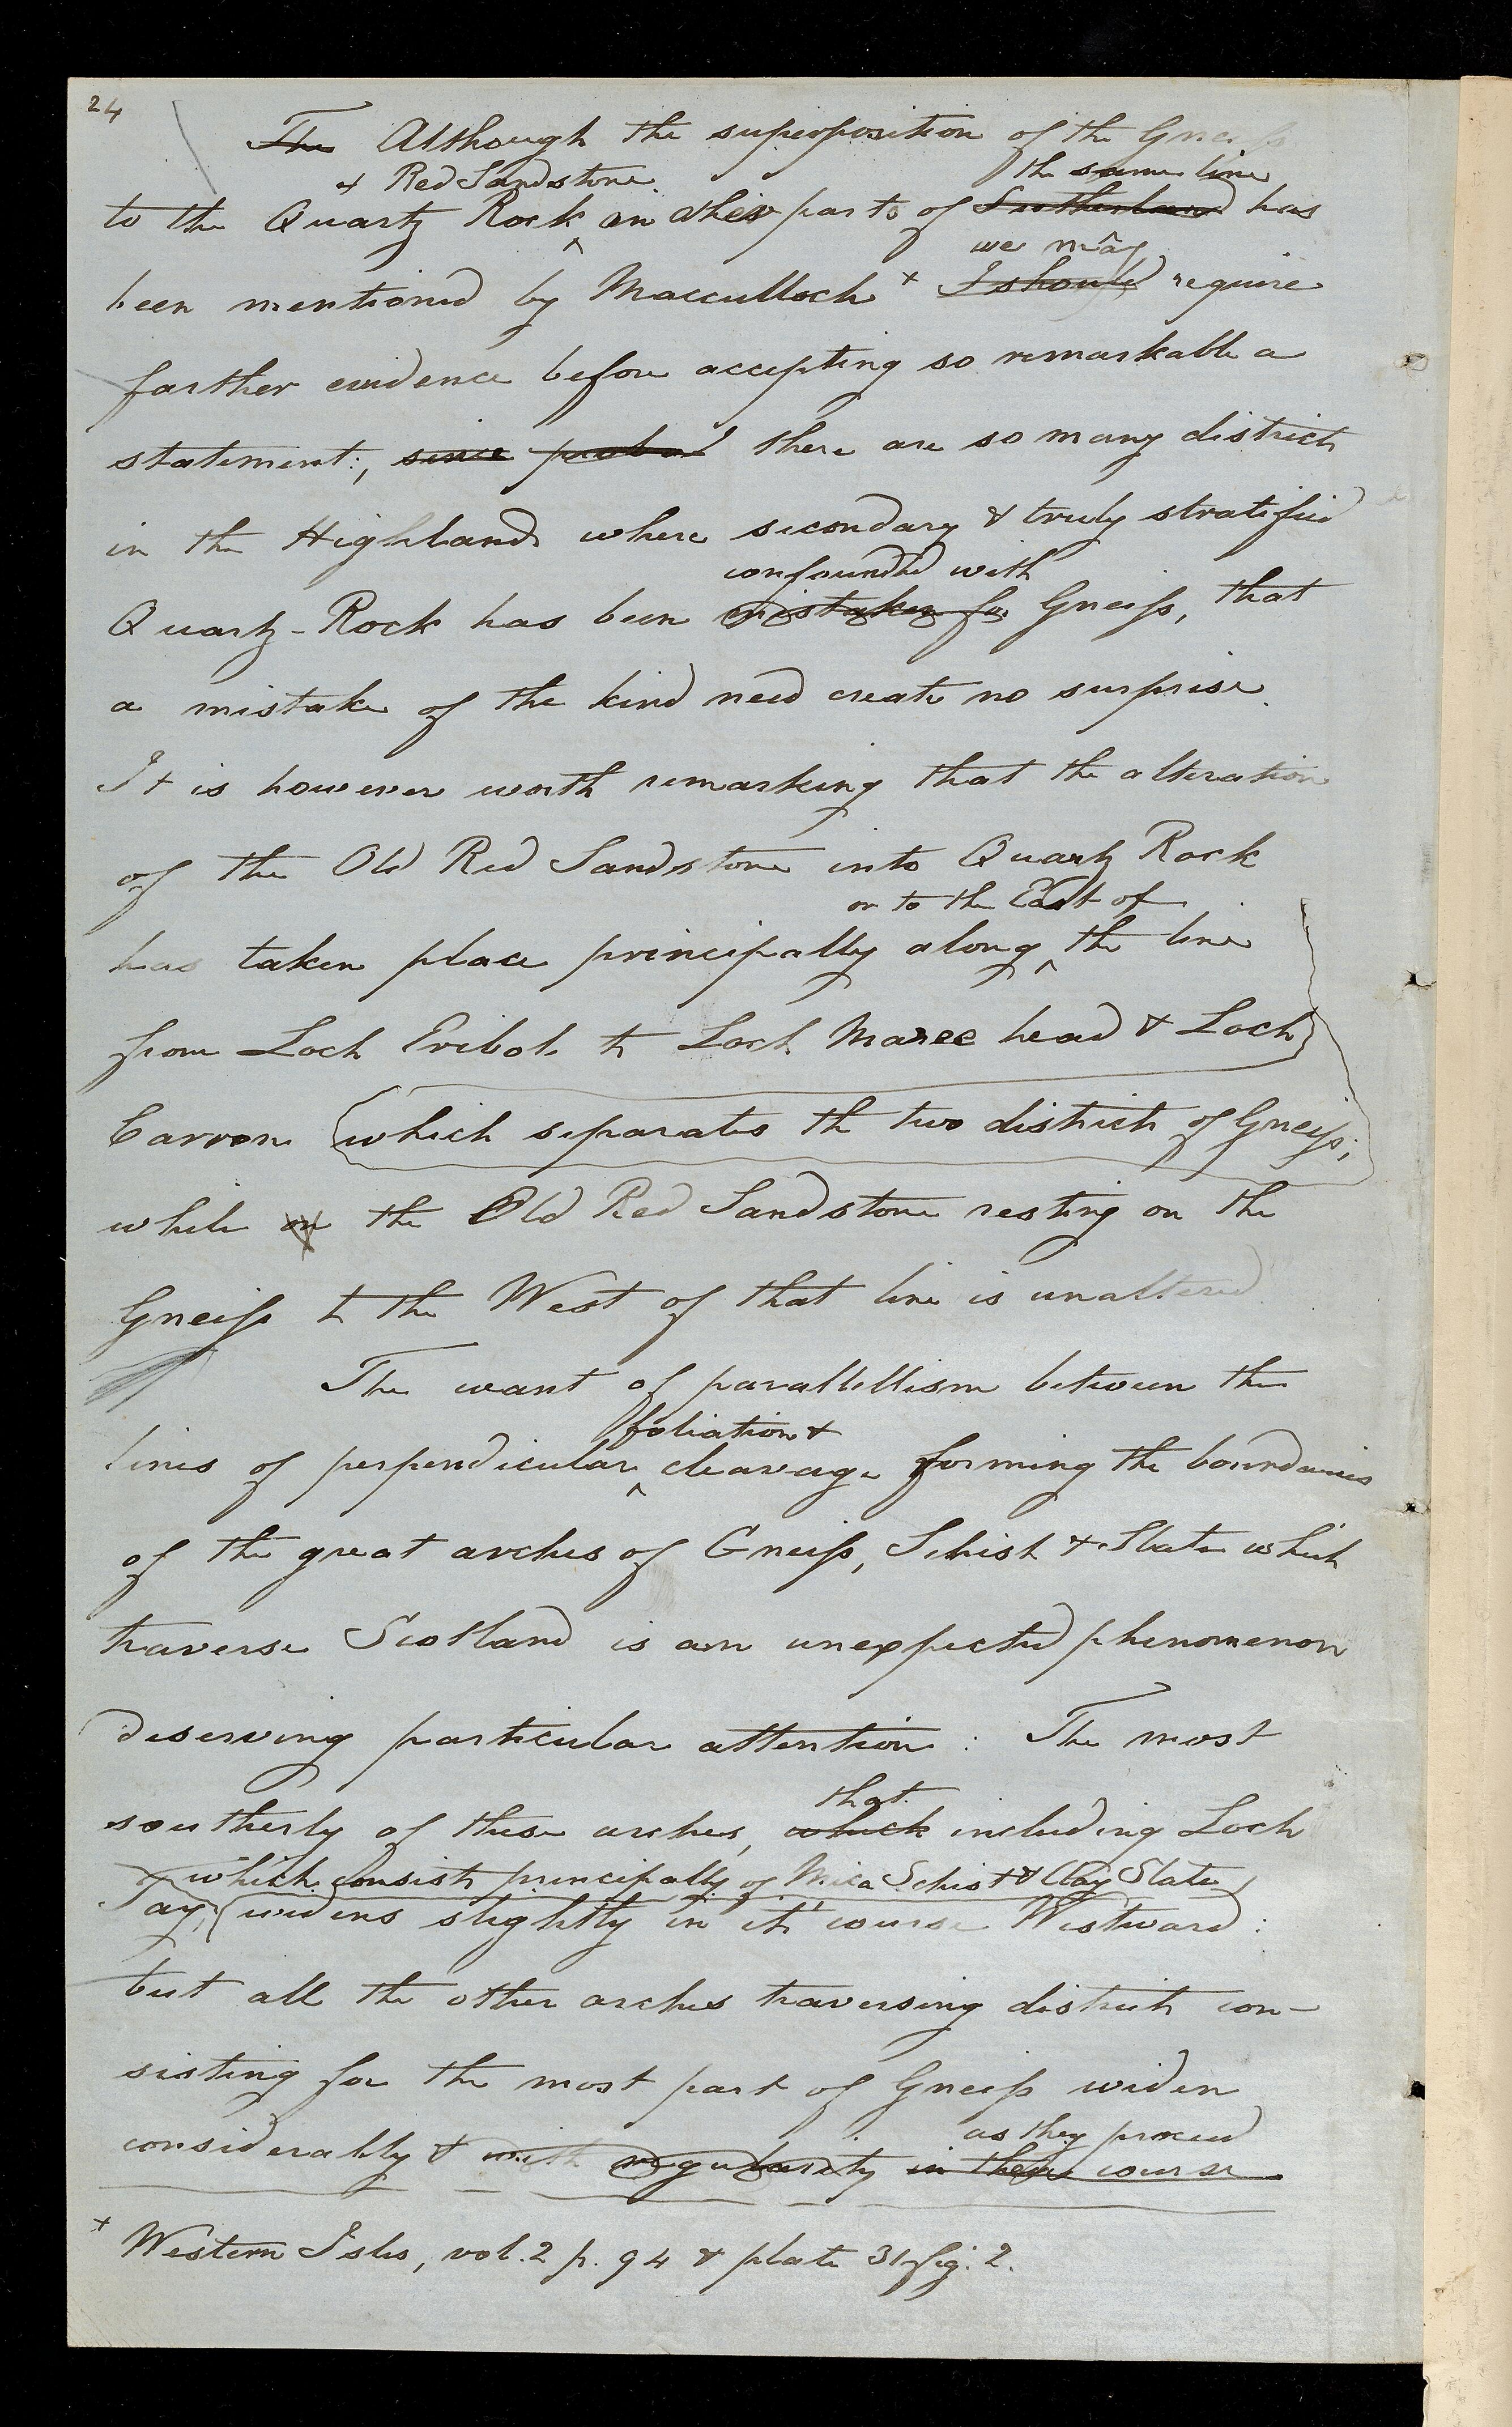 24
The Although the superposition of the Gneiss
& Red Sandstone the same line
to the Quartz Rock in other parts of Sutherland has
we may
been mentioned by Macculloch + I should require
farther evidence before accepting so remarkable a
statement:, since there are so many districts
in the Highlands where secondary & truly stratified
confounded with
Quartz-Rock has been mistaken for Gneiss, that
a mistake of the kind need create no surprise.
It is however worth remarking that the alteration
of the Old Red Sandstone into Quartz Rock
or to the East of
has taken place principally along ^ the line
from Loch Eribol to Loch Maree head & Loch
Carron (which separates the two districts of Gneiss;
while on the Old Red Sandstone resting on the
Gneiss to the West of that line is unaltered
The want of parallellism between the
foliation &
lines of perpendicular ^ cleavage forming the boundaries
of the great arches of Gneiss, Schist & Slate which
traverse Scotland is an unexpected phenomenon
deserving particular attention: The most
that
southerly of these arches, which including Loch
& which consists principally of Mica Schist & Clay Slate
Tay, widens slightly in it's course Westward:
but all the other arches traversing districts con-
sisting for the most part of Gneiss widen
as they proceed
considerably & with regularity in their course
+ Western Isles, vol. 2 p. 94 & plate 31 fig. 2.